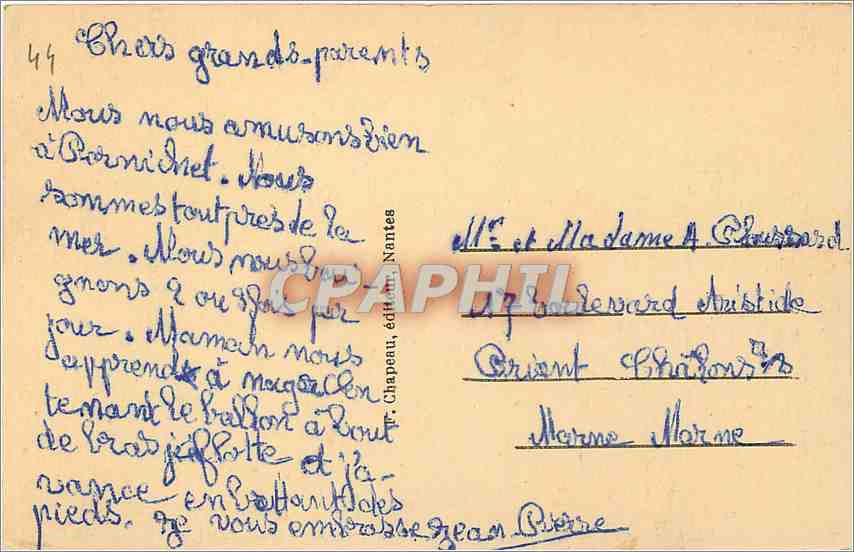 44
Chers grands-parents
Nous nous amusons bien
à Pornichet. Nous
sommes tout près de la
mer. Nous nous bai-
gnons 2 ou 3 fois par
jour. Maman nous
apprend à nager. En
tenant le ballon à bout
de bras je flotte et j'a-
vance en battant des
pieds. Je vous embrasse Jean Pierre
F. Chapeau, éditeur, Nantes
CPAPHIL
Mr. et Madame A.
17 boulevard Aristide
Briant Châlons s/s
Marne Marne